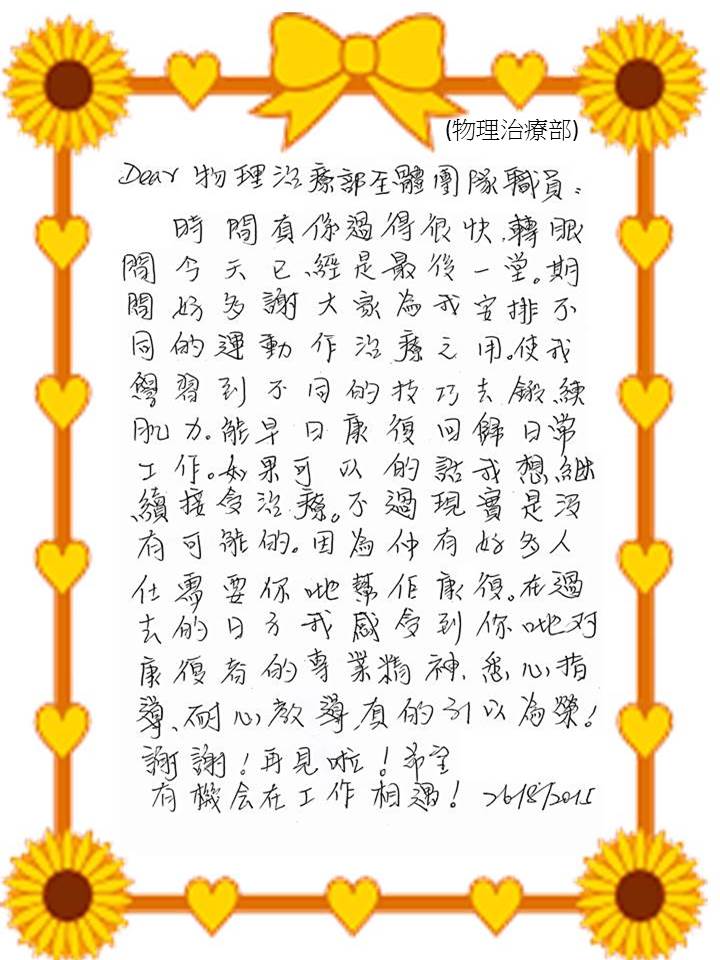 (物理治療部)
Dear 物理治療部全體團隊職員：
時間真係過得很快，轉眼
間今天已經是最後一堂。期
間好多謝大家為我安排不
同的運動作治療之用。使我
學習到不同的技巧去鍛練
肌力。能早日康復回歸日常
工作。如果可以的話我想繼
續接受治療。不過現實是沒
有可能的。因為仲有好多人
仕需要你哋幫佢康復。在過
去的日子我感受到你哋对
康復者的專業精神、悉心指
導、耐心教導，真的引以為榮！
謝謝！再見啦！希望
有機会在工作相遇！ 26/8/2015